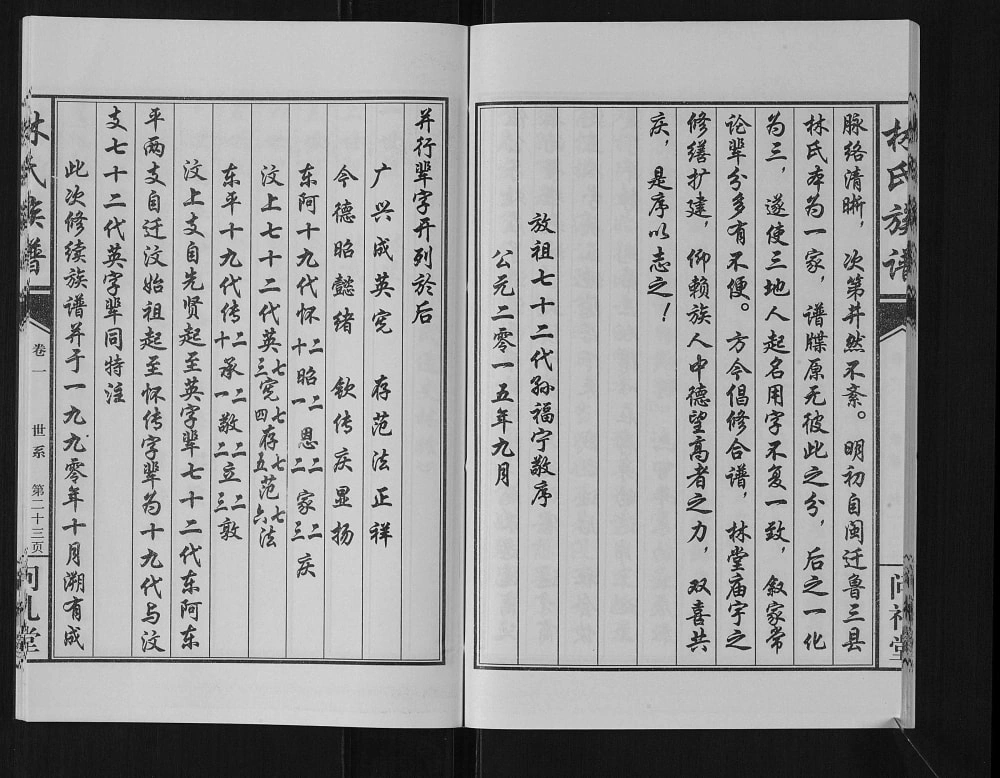 林氏族谱
问礼堂
脉络清晰，次第井然不紊。明初自闽迁鲁三县
林氏本为一家，谱牒原无彼此之分，后之一化
为三，遂使三地人起名用字不复一致，叙家常
论辈分多有不便。方今倡修合谱，林堂庙宇之
修缮扩建，仰赖族人中德望高者之力，双喜共
庆，是序以志之！
放祖七十二代孙福宁敬序
公元二零一五年九月
并行辈字开列於后
广兴成英宪 存范法正祥
今德昭懿绪 钦传庆显扬
东阿十九代怀二十昭二一恩二二家二三庆
汶上七十二代英七三宪七四存七五范七六法
东平十九代传二十承二一敬二二立二三敦
汶上支自先贤起至英字辈七十二代东阿东
平两支自迁汶始祖起至怀传字辈为十九代与汶
支七十二代英字辈同特注
此次修续族谱并于一九九零年十月溯有成
林氏族谱
卷一 世系 第二十三页
问礼堂